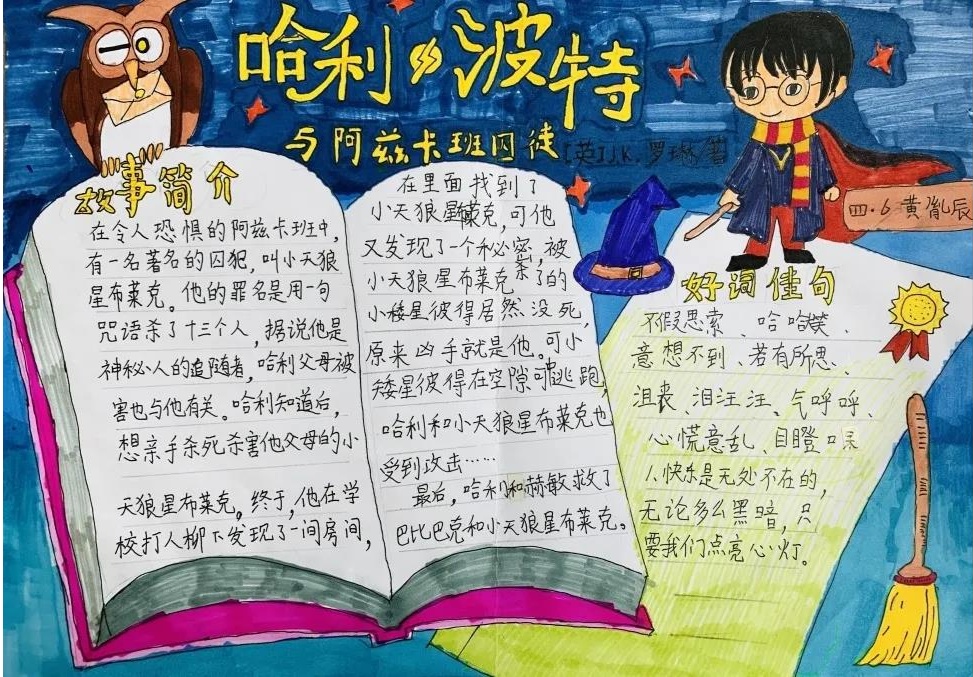 哈利波特
与阿兹卡班囚徒
[英]J.K.罗琳/著
四.6 黄胤辰
故事简介
在令人恐惧的阿兹卡班中,
有一名著名的囚犯,叫小天狼
星布莱克。他的罪名是用一句
咒语杀了十三个人,据说他是
神秘人的追随者,哈利父母被
害也与他有关。哈利知道后,
想亲手杀死杀害他父母的小
天狼星布莱克。终于,他在学
校打人柳下发现了一间房间,
在里面找到了
小天狼星莱克,可他
又发现了一个秘密,被
小天狼星布莱克杀了的
小矮星彼得居然没死,
原来凶手就是他。可小
矮星彼得在空隙中逃跑,
哈利和小天狼星布莱克也
受到攻击……
最后,哈利和赫敏救了
巴比巴克和小天狼星布莱克。
好词佳句
不假思索、哈哈大笑、
意想不到、若有所思、
沮丧、泪汪汪、气呼呼、
心慌意乱、目瞪口呆
人快乐是无处不在的,
无论多么黑暗,只
要我们点亮心灯。